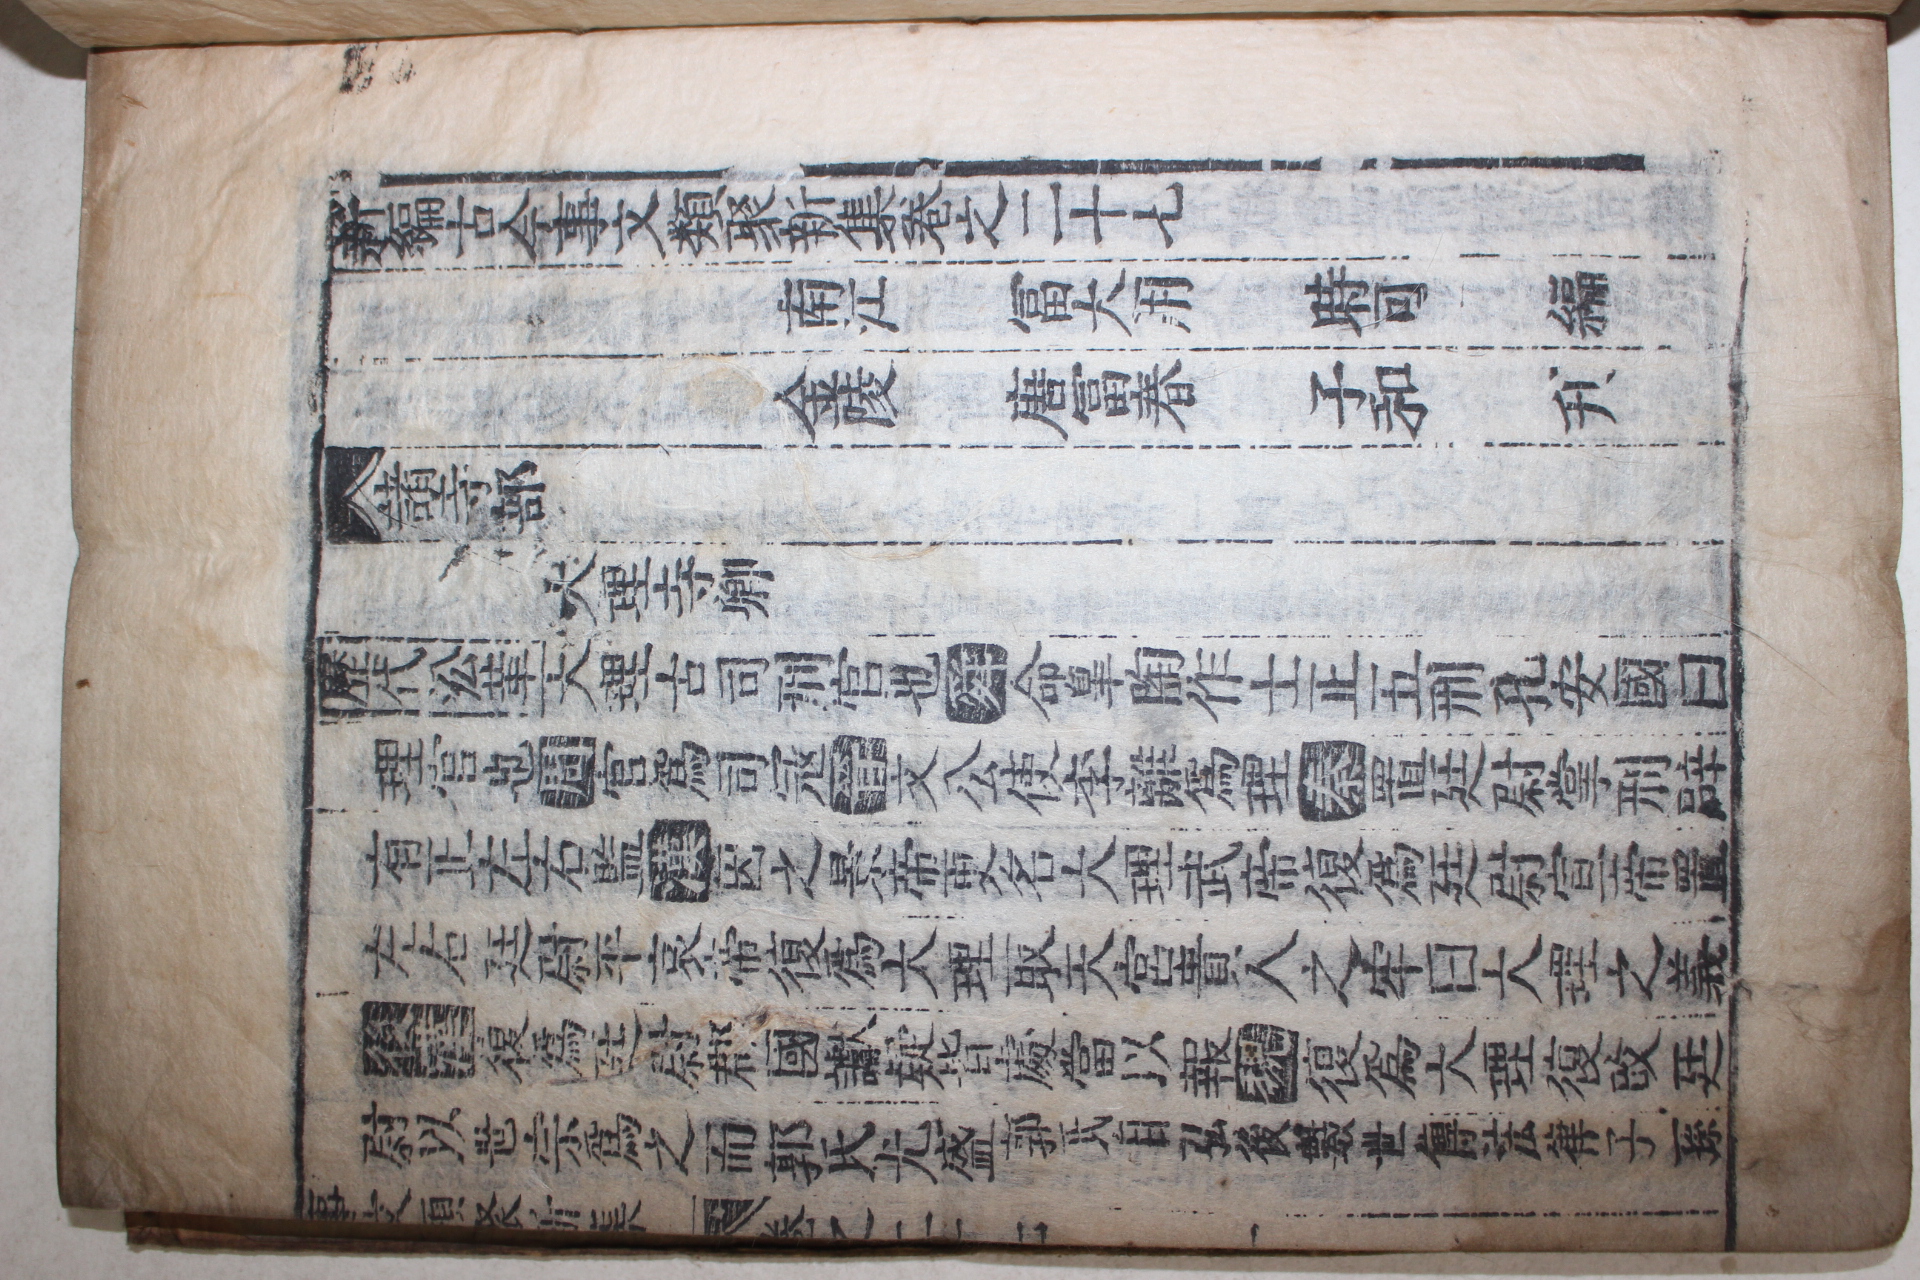 新編古今事文類聚新集卷之二十七
南江 冨大用 時可 編
金陵 唐冨春 子和 刋
諸寺部
大理寺卿
歷代㳂革大理古司刑官也舜命皐陶作士正五刑孔安國曰
理官也周官爲司冦晋文公使李離爲理秦置廷尉掌刑辟
有正左右監漢因之景帝更名大理武帝復爲廷尉宣帝置
左右廷尉平哀帝復爲大理取天官貴人之牢曰大理之義
後漢復爲廷尉郡國讞疑皆處當以報魏復爲大理復改廷
尉以世宗爲之而郭氏尤盛郭氏自弘後數世傳法律子孫
事文類聚新集 卷之二十七 一